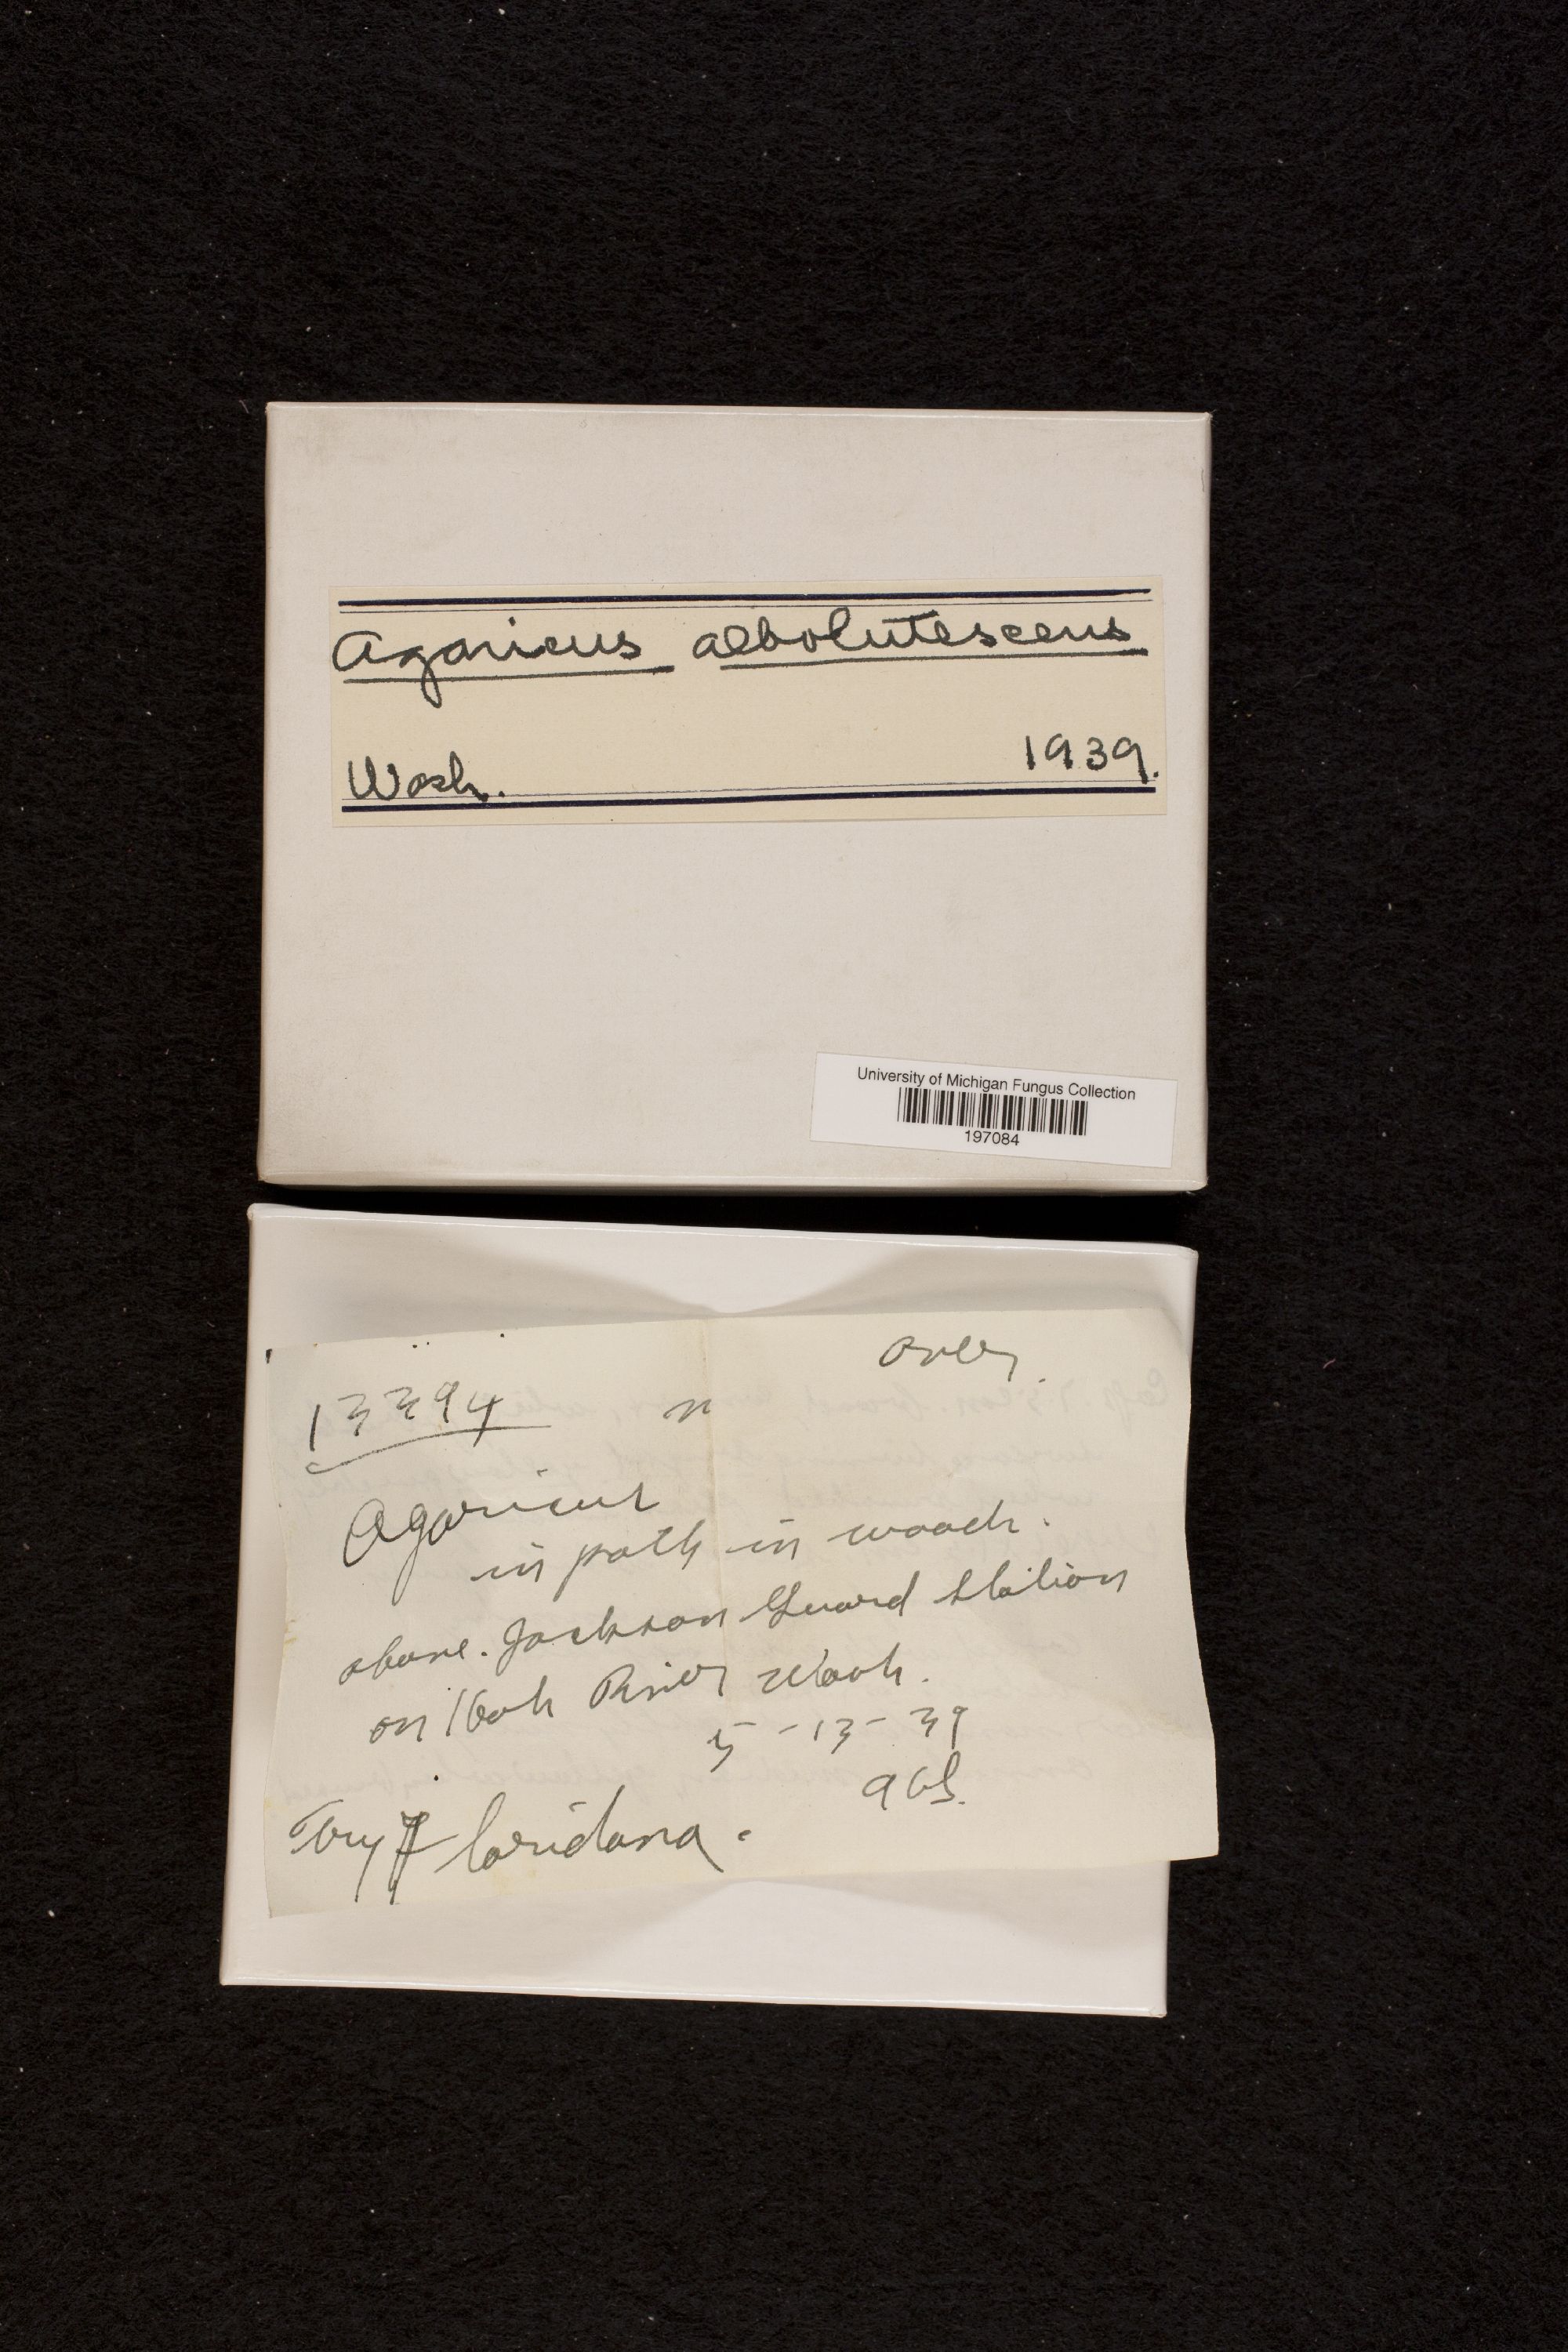 Agaricus albolutescens
Wash. 1939.
University of Michigan Fungus Collection
197084
over
13394 n
Agaricus
in path in woods.
above. Jackson Guard Station
on Hoh River Wash.
5-13-39
AHS.
Try floridana.